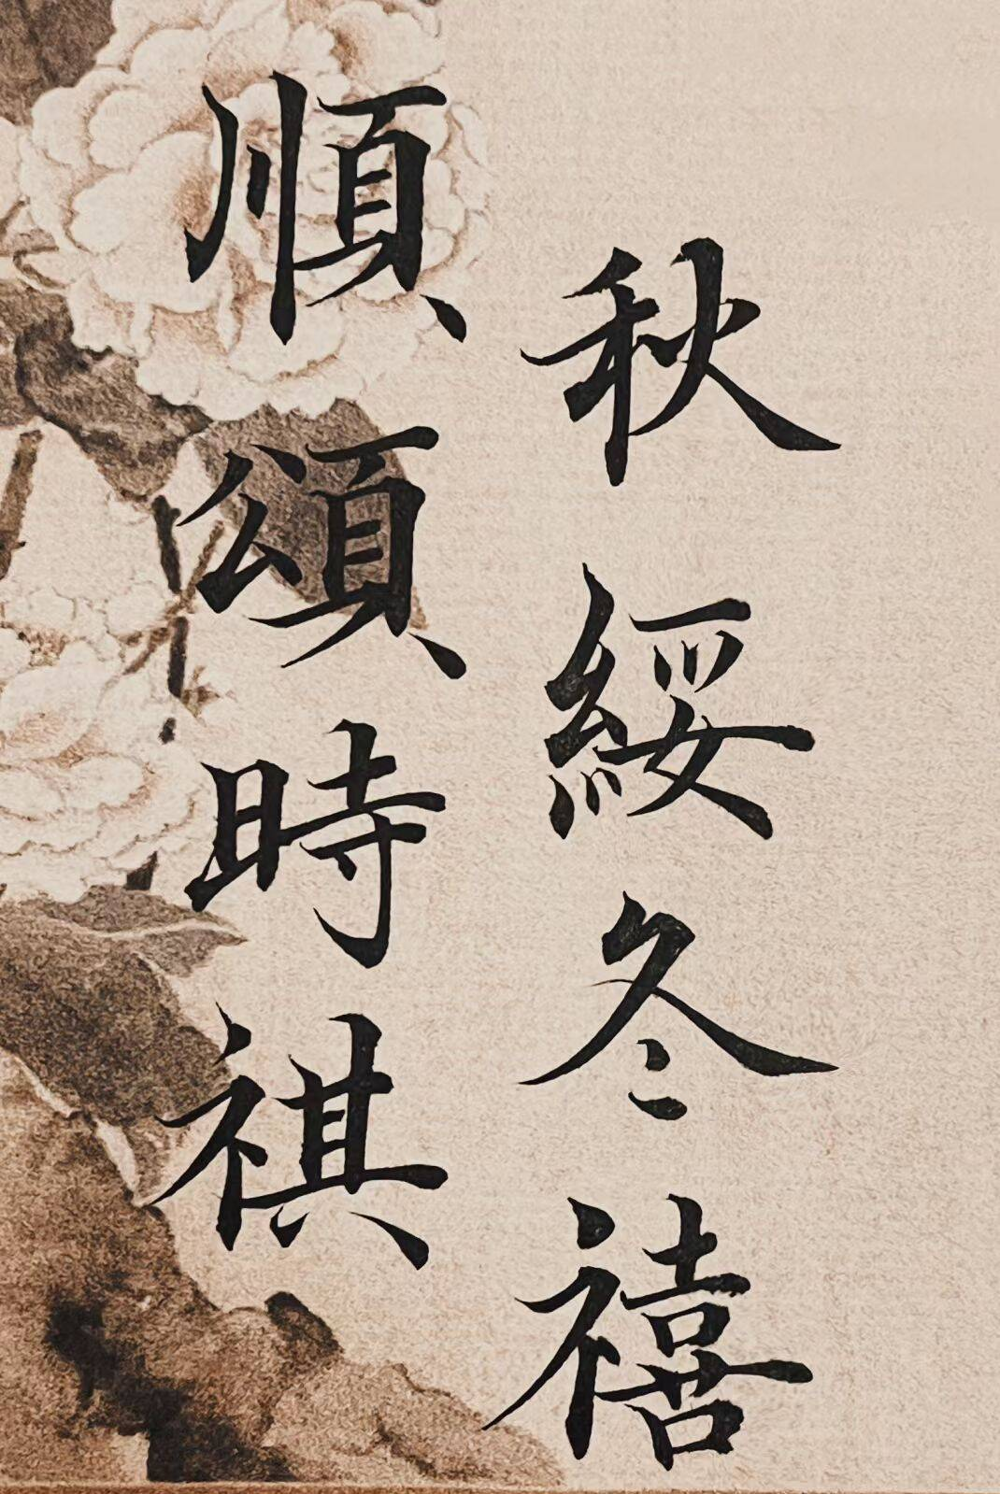 秋綏冬禧
順頌時祺